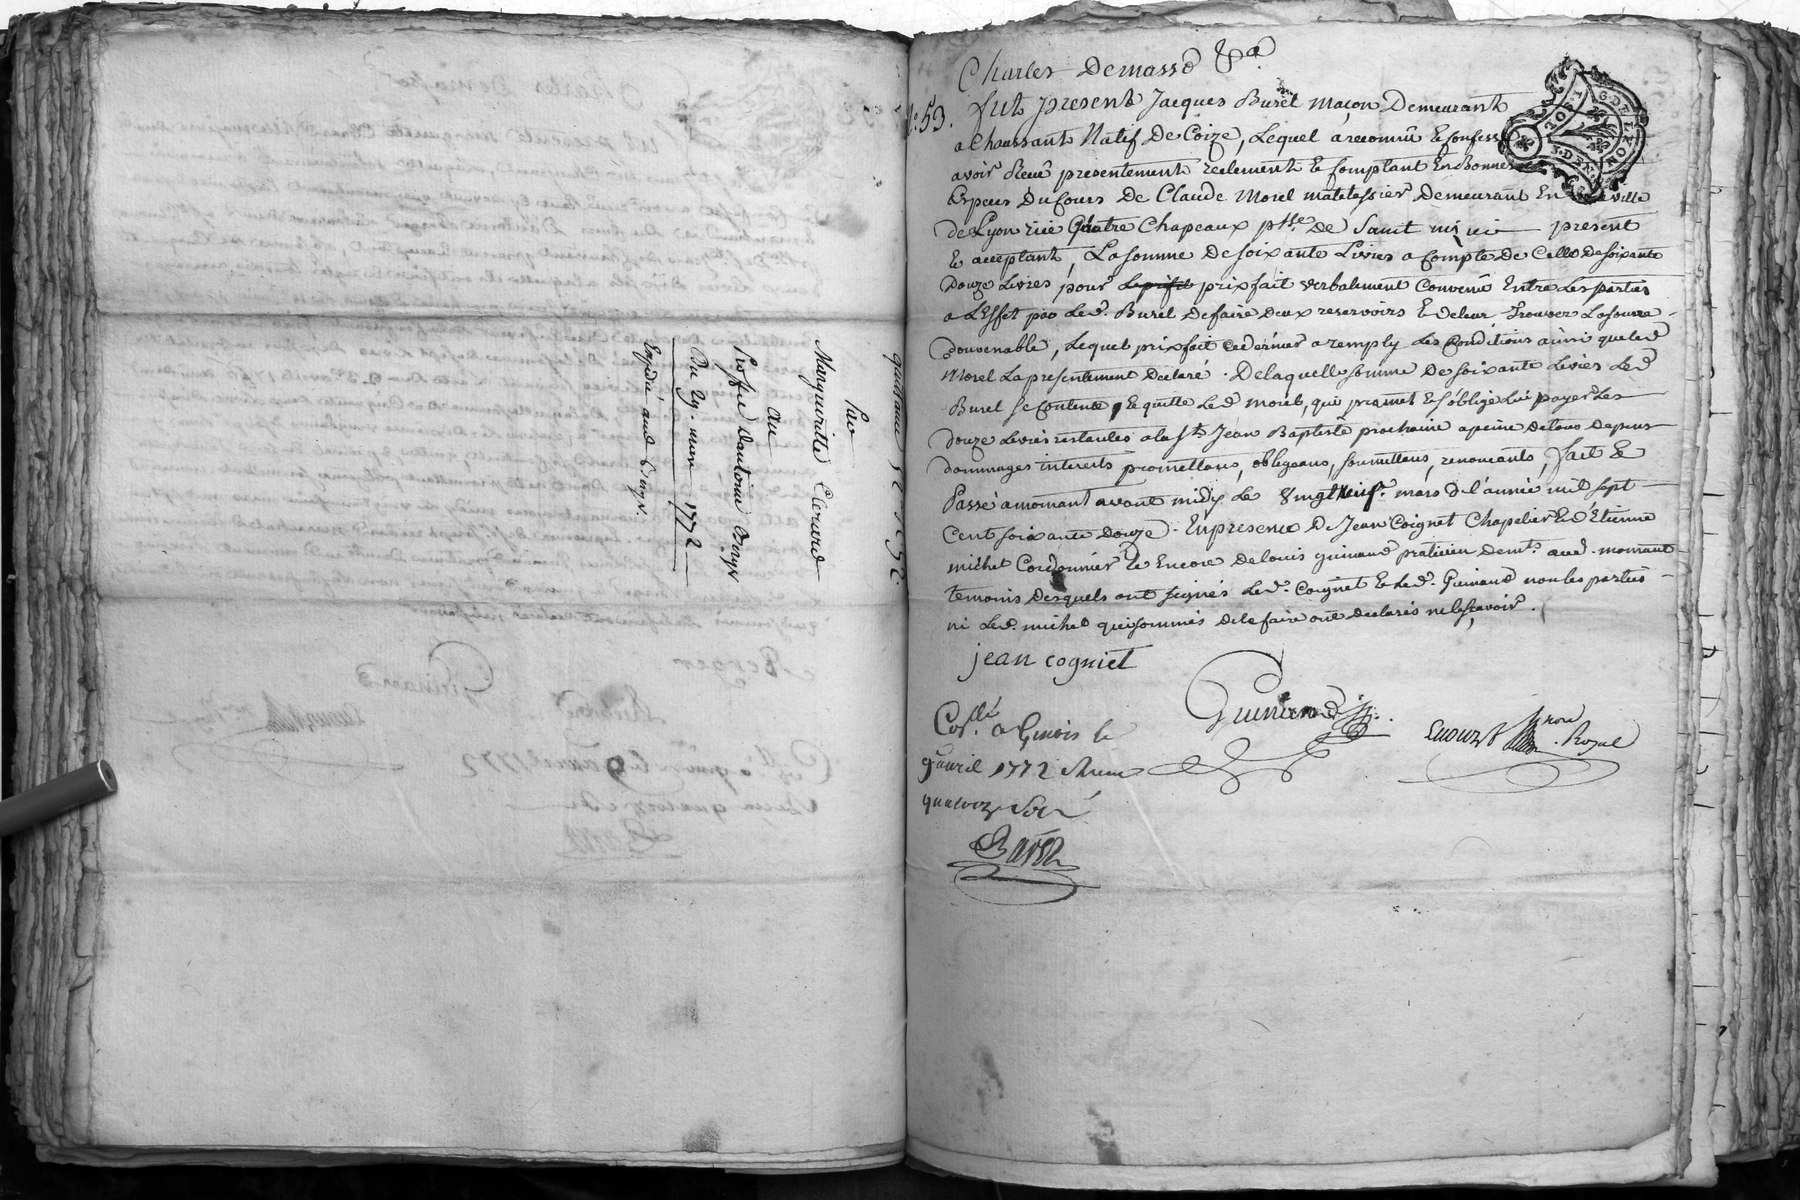 Par
Margueritte Escriard
au
Proffit d'antoine Berger
Du 29. mars 1772
Expédié aud. Berger
Charles Demasso &a.
53.
fut present Jacques Burel maçon Demeurant
a Chaussant Natif De Coize, Lequel a reconnû et Confessé
avoir Receu presentement reelement et Comptant En bonnes
Especes Du Cours De Claude Morel matelassier Demeurant En ville
de Lyon rüe Quatre Chapeaux psse. De Saint nizier present
et acceptant, La somme De soixante Livres a Compte De Celle De soixante
Douze Livres pour prixfait verbalement Convenû Entre Les parties
a L'Effet par Led. Burel De faire Deux reservoirs et De leur Trouver La source
Convenable, Lequel prixfait ce dernier a remply Les Conditions ainsi que led.
Morel La presentement Declaré. De laquelle somme De soixante Livres Led.
Burel Se Contente, et quitte Led. Morel, qui promet et s'oblige Lui payer Les
Douze Livres restantes a la St. Jean Baptiste prochaine a peine De tous Depens
Dommages interests promettans, obligeans, soumettans, renonçants, fait et
Passé a mornant avant midy Le Vingt Neuf. mars De l'année mil sept
Cent soixante Douze. En presence De Jean Coignet Chapelier et d'Etienne
michel Cordonnier et Encore De Louis guinand praticien Demt. aud. mornant
temoins Desquels ont signés Led. Coignet et Led. Guinand non les parties
ni Led. michel qui sommés De le faire ont Declarés ne le sçavoir.
jean cogniet
Guinand
Royal
Collé. a Givors le
9 avril 1772
quatorze
Baren